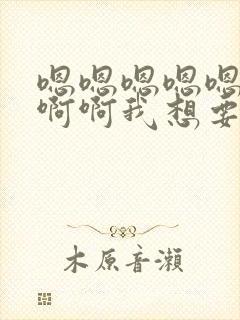 嗯嗯嗯嗯嗯
啊啊我想要
木原音瀨